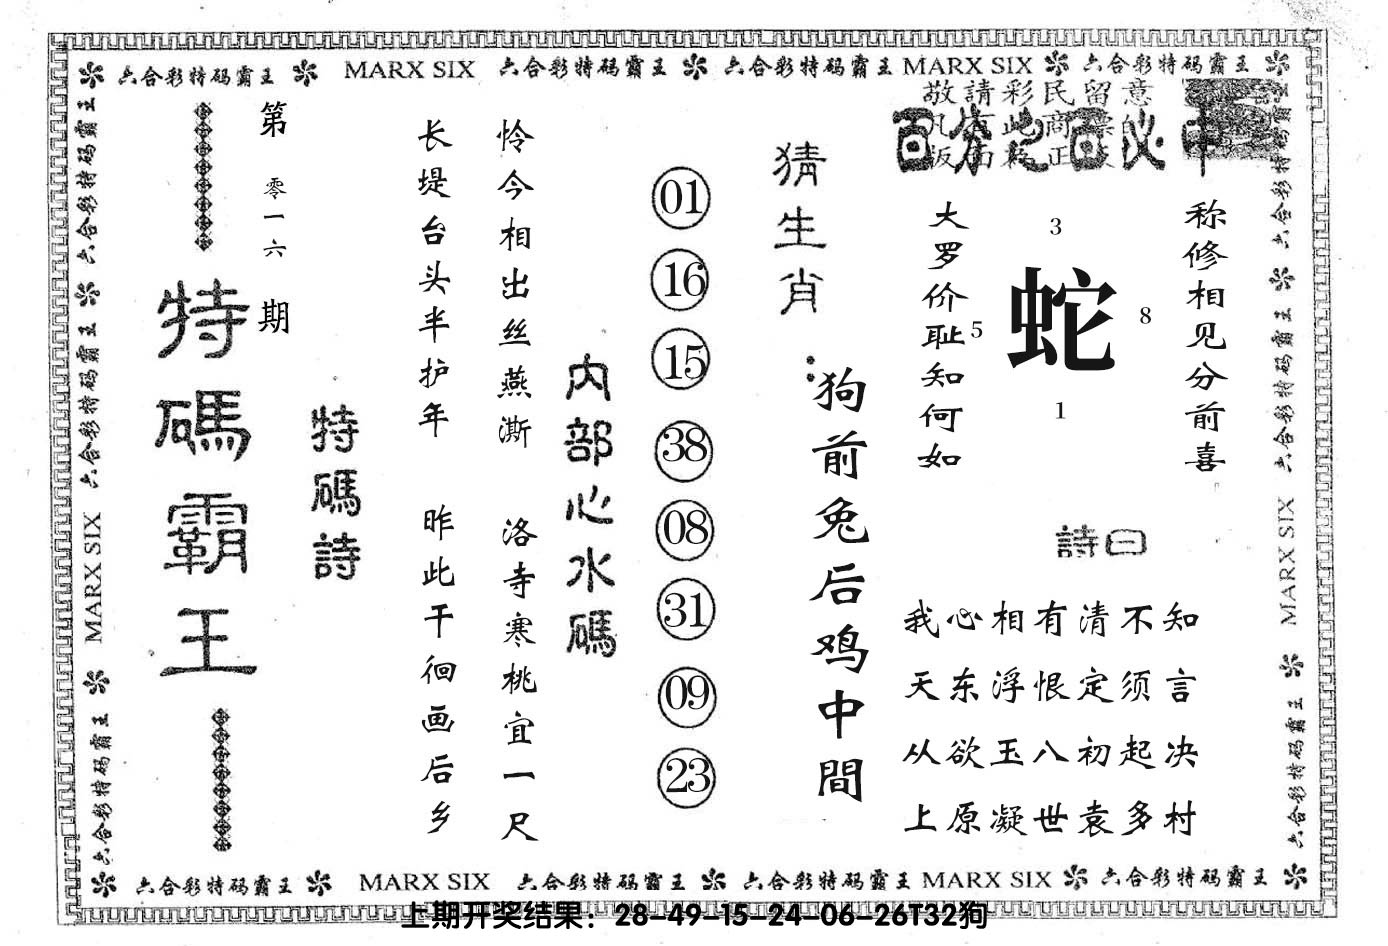 六合彩特码霸王 MARX SIX 六合彩特码霸王 六合彩特码霸王 MARX SIX 六合彩特码霸王
敬請彩民留意
百分之百必中
称修相见分前喜
3
5
蛇
8
1
大罗价耻知何如
詩曰
我心相有清不知
天东浮恨定须言
从欲玉八初起决
上原凝世袁多村
猜生肖：
狗前兔后鸡中間
01
16
15
38
08
31
09
23
内部心水碼
怜今相出丝燕澌 洛寺寒桃宜一尺
长堤台头半护年 昨此干徊画后乡
特碼詩
第零一六期
特碼霸王
六合彩特码霸王 六合彩特码霸王 MARX SIX 六合彩特码霸王
六合彩特码霸王 六合彩特码霸王 MARX SIX 六合彩特码霸王
六合彩特码霸王 MARX SIX 六合彩特码霸王 六合彩特码霸王 MARX SIX 六合彩特码霸王
上期开奖结果：28-49-15-24-06-26T32狗